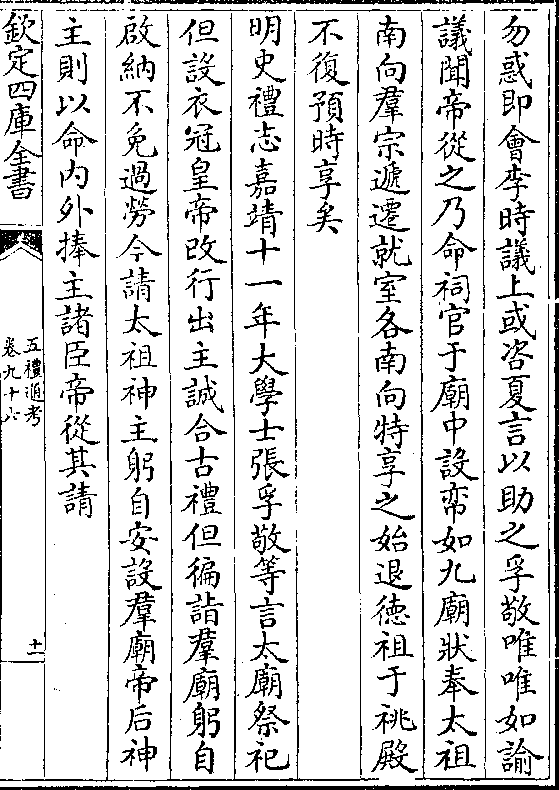 勿惑即會李時議上或咨夏言以助之孚敬唯唯如諭
議聞帝從之乃命祠官于廟中設帟如九廟狀奉太祖
南向羣宗遞遷就室各南向特享之始退德祖于祧殿
不復預時享矣
明史禮志嘉靖十一年大學士張孚敬等言太廟祭祀
但設衣冠皇帝改行出主誠合古禮但徧詣羣廟躬自
啟納不免過勞今請太祖神主躬自安設羣廟帝后神
主則以命內外捧主諸臣帝從其請
欽定四庫全書
五禮通考
卷九十六
十一